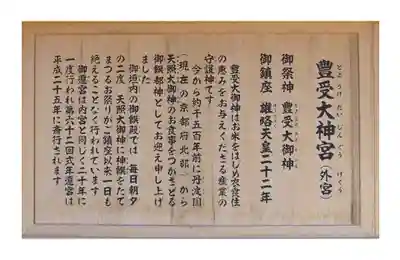 豊受大神宮(外宮)
とようけだいじんぐう げくう
御祭神 豊受大御神
御鎮座 雄略天皇二十二年
豊受大御神はお米をはじめ衣食住
の恵みをお与えくださる産業の
守護神です
今から約千五百年前に丹波国
(現在の京都府北部)から
天照大御神のお食事をつかさどる
御饌都神としてお迎え申し上げ
ました
御垣内の御饌殿では 毎日朝夕
の二度 天照大御神に神饌をたて
まつるお祭りがご鎮座以来一日も
絶えることなく行われています
御遷宮は内宮と同じく二十年に
一度行われ第六十二回式年遷宮は
平成二十五年に斎行されます